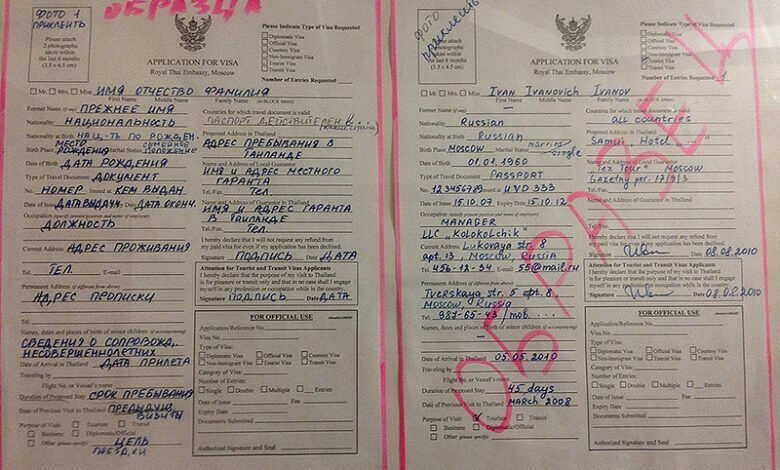 ОБРАЗЕЦ
ФОТО 1
ПРИКЛЕИТЬ
Please attach
2 photographs
taken within
the last 6 months
(3.5 x 4.5 cm)
APPLICATION FOR VISA
Royal Thai Embassy, Moscow
Please Indicate Type of Visa Requested
Diplomatic Visa
Official Visa
Courtesy Visa
Non-Immigrant Visa
Tourist Visa
Transit Visa
Number of Entries Requested
Mr. Mrs. Miss ИМЯ ОТЧЕСТВО ФАМИЛИЯ
First Name Middle Name Family Name (in BLOCK letters)
Former Name (if any) ПРЕЖНЕЕ ИМЯ
Nationality НАЦИОНАЛЬНОСТЬ
Nationality at Birth НАЦ-ТЬ ПО РОЖДЕН.
Birth Place МЕСТО РОЖДЕНИЯ Marital Status СЕМЕЙНОЕ ПОЛОЖЕНИЕ
Date of Birth ДАТА РОЖДЕНИЯ
Type of Travel Document ДОКУМЕНТ
No. НОМЕР Issued at КЕМ ВЫДАН
Issue Date ДАТА ВЫДАЧИ Expiry Date ДАТА ОКОНЧ.
Occupation (specify present position and name of employer)
ДОЛЖНОСТЬ
Current Address АДРЕС ПРОЖИВАНИЯ
Tel. ТЕЛ. E-mail
Permanent Address (if different from above)
АДРЕС ПРОПИСКИ
Tel.
Names, dates and places of birth of minor children (if accompanying)
СВЕДЕНИЯ О СОПРОВОЖД.
НЕСОВЕРШЕННОЛЕТНИХ
Date of Arrival in Thailand ДАТА ПРИЛЕТА
Traveling by
Flight No. or Vessel's name
Duration of Proposed Stay СРОК ПРЕБЫВАНИЯ
Date of Previous Visit to Thailand ПРЕДЫДУЩ. ВИЗИТЫ
Purpose of Visit: Tourism Transit
Business Diplomatic/Official
Other (please specify) ЦЕЛЬ ПОЕЗДКИ
Countries for which travel document is valid
ПАСПОРТ ДЕЙСТВИТЕЛЕН В ...
Proposed Address in Thailand
АДРЕС ПРЕБЫВАНИЯ В
ТАИЛАНДЕ
Name and Address of Local Guarantor
ИМЯ И АДРЕС МЕСТНОГО
ГАРАНТА
Tel./Fax. ТЕЛ.
Name and Address of Guarantor in Thailand
ИМЯ И АДРЕС ГАРАНТА
В ТАИЛАНДЕ
Tel./Fax. ТЕЛ.
I hereby declare that I will not request any refund from
my paid visa fee even if my application has been declined.
Signature ПОДПИСЬ Date ДАТА
Attention for Tourist and Transit Visas Applicants
I hereby declare that the purpose of my visit to Thailand
is for pleasure or transit only and that in no case shall I engage
myself in any profession or occupation while in the country.
Signature ПОДПИСЬ Date ДАТА
FOR OFFICIAL USE
Application/Reference No.
Visa No.
Type of Visa:
Diplomatic Visa Official Visa Courtesy Visa
Non-Immigrant Visa Tourist Visa Transit Visa
Category of Visa:
Number of Entries:
Single Double Multiple Entries
Date of Issue Fee
Expiry Date
Documents Submitted
Authorized Signature and Seal
ОБРАЗЕЦ
ФОТО
ПРИКЛЕИТЬ
Please attach
2 photographs
taken within
the last 6 months
(3.5 x 4.5 cm)
APPLICATION FOR VISA
Royal Thai Embassy, Moscow
Please Indicate Type of Visa Requested
Diplomatic Visa
Official Visa
Courtesy Visa
Non-Immigrant Visa
Tourist Visa
Transit Visa
Number of Entries Requested 1
Mr. Mrs. Miss IVAN IVANOVICH IVANOV
First Name Middle Name Family Name (in BLOCK letters)
Former Name (if any) —
Nationality Russian
Nationality at Birth Russian
Birth Place MOSCOW Marital Status married single
Date of Birth 01.01.1960
Type of Travel Document PASSPORT
No. 123456789 Issued at UVD 333
Issue Date 15.10.07 Expiry Date 15.10.12
Occupation (specify present position and name of employer)
MANAGER
LLC „KOLOKOLCHIK"
Current Address Lukovaya str. 8
apt. 13, Moscow, Russia
Tel. 456-12-34 E-mail 55@mail.ru
Permanent Address (if different from above)
Tverskaya str. 5 apt. 8,
Moscow, Russia
Tel. 987-65-43 /mob. ...
Names, dates and places of birth of minor children (if accompanying)
—
Date of Arrival in Thailand 05.05.2010
Traveling by
Flight No. or Vessel's name
Duration of Proposed Stay 45 days
Date of Previous Visit to Thailand MARCH 2008
Purpose of Visit: Tourism Transit
Business Diplomatic/Official
Other (please specify)
Countries for which travel document is valid
all countries
Proposed Address in Thailand
Samui Hotel „ "
Name and Address of Local Guarantor
„Tez Tour" Moscow
Gazetny per. 17/9/3
Tel./Fax.
Name and Address of Guarantor in Thailand
Tel./Fax.
I hereby declare that I will not request any refund from
my paid visa fee even if my application has been declined.
Signature Date 08.08.2010
Attention for Tourist and Transit Visas Applicants
I hereby declare that the purpose of my visit to Thailand
is for pleasure or transit only and that in no case shall I engage
myself in any profession or occupation while in the country.
Signature Date 08.08.2010
FOR OFFICIAL USE
Application/Reference No.
Visa No.
Type of Visa:
Diplomatic Visa Official Visa Courtesy Visa
Non-Immigrant Visa Tourist Visa Transit Visa
Category of Visa:
Number of Entries:
Single Double Multiple Entries
Date of Issue Fee
Expiry Date
Documents Submitted
Authorized Signature and Seal